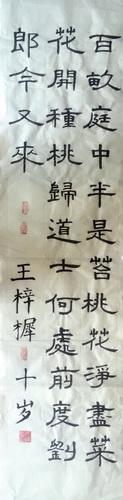 百畝庭中半是苔桃花淨盡菜
花開種桃歸道士何處前度劉
郎今又來
王梓樨十岁